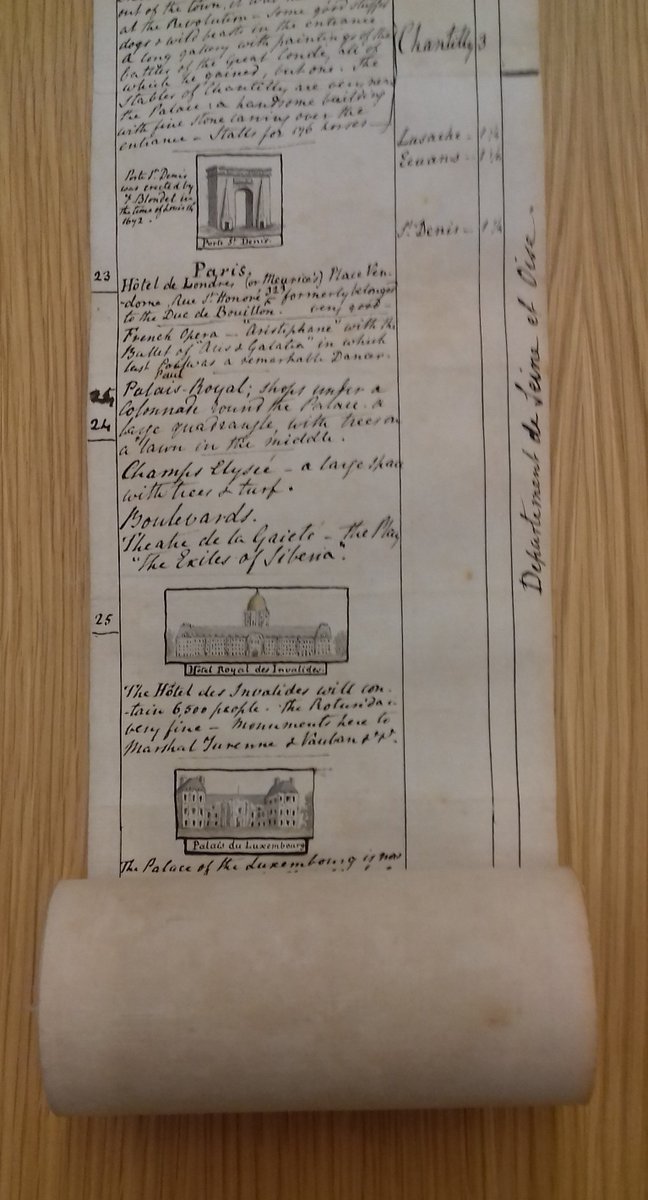 out of the town, it was
at the Revolution - Some good stuffed
dogs & wild beasts in the entrance
a long gallery with paintings of the
battles of the Great Condé, all of
which he gained, but one. The
Stables of Chantilly are very near
the Palace: a handsome building
with fine stone carving over the
entrance - Stalls for 196 horses -
Chantilly 3
Lusache - 1 1/2
Ecouans - 1 1/2
St. Denis - 1 1/4
Porte St. Denis
was erected by
Blondel in
the time of Louis 14
1672.
Porte St. Denis.
23
Paris.
Hôtel de Londres (or Meurice's) Place Ven-
-dome, Rue St. Honoré 323 formerly belonged
to the Duc de Bouillon. very good -
French Opera - "Aristiphane" with the
Ballet of "Acis & Galatia" in which
last Paul was a remarkable Dancer.
Paul
Palais-Royal; shops under a
24
Colonnade round the Palace. a
large quadrangle, with trees on
a lawn in the middle.
Champs Elysée - a large space
with trees & turf.
Boulevards.
Theatre de la Gaieté - the Play
"The Exiles of Siberia".
25
Hôtel Royal des Invalides
The Hôtel des Invalides will con-
-tain 6,500 people. The Rotunda is
very fine - Monuments here to
Marshal Turenne & Vauban &c.
Palais du Luxembourg
The Palace of the Luxembourg is now
Departement de Seine et Oise.